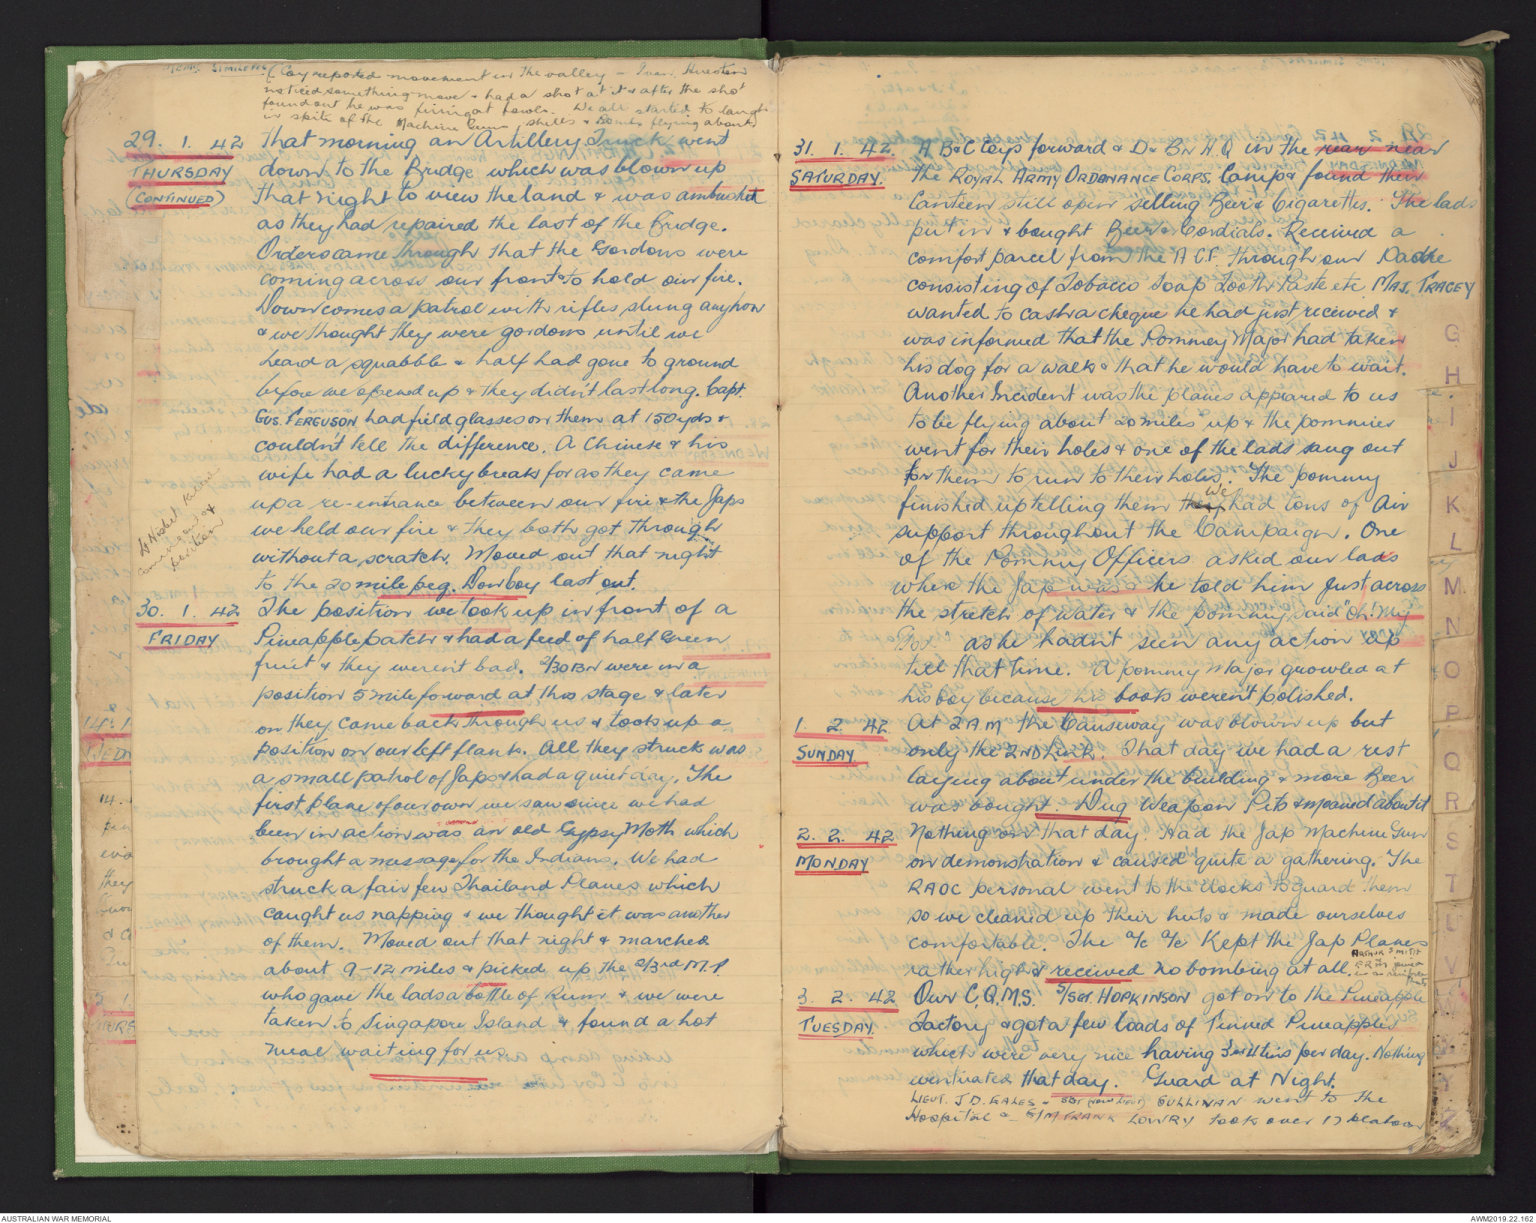 (Coy reported movement in the valley - Ivan Hereton
noticed something move & had a shot at it & after the shot
found out he was firing at fowls. We all started to laugh
in spite of the Machine Guns shells & bombs flying about)
29. 1. 42
THURSDAY
(CONTINUED)
That morning an Artillery Truck went
down to the Bridge which was blown up
that night to view the land & was ambushed
as they had repaired the last of the Bridge.
Orders came through that the Gordons were
coming across our front & to hold our fire.
Down comes a patrol with rifles slung anyhow
& we thought they were gordons until we
heard a squabble & half had gone to ground
before we opened up & they didn't last long. Capt.
GUS. FERGUSON had field glasses on them at 150 yds &
couldn't tell the difference. A Chinese & his
wife had a lucky break for as they came
up a re-entrance between our fire & the Japs
we held our fire & they both got through
without a scratch. Moved out that night
to the 20 mile peg. Don boy last out.
position
30. 1. 42
FRIDAY
The position we took up in front of a
Pineapple patch & had a feed of half Green
fruit & they weren't bad. 2/30 BN were in a
position 5 mile forward at this stage & later
on they came back through us & took up a
position on our left flank. All they struck was
a small patrol of Japs & had a quiet day. The
first plane of our own we saw since we had
been in action was an old Gypsy Moth which
brought a message for the Indians. We had
struck a fair few Thailand Planes which
caught us napping & we thought it was another
of them. Moved out that night & marched
about 9-12 miles & picked up the 2/3rd M.T
who gave the lads a bottle of Rum & we were
taken to Singapore Island & found a hot
meal waiting for us
31. 1. 42.
SATURDAY.
A B & C Coys forward & D & BN H.Q in the rear near
the ROYAL ARMY ORDONANCE CORPS. Camp & found their
Canteen still open selling Beer & Cigarettes. The lads
put in & bought Beer & Cordials. Received a
comfort parcel from the A C.F. through our Padre
consisting of Tobacco Soap Tooth Paste etc MAJ. TRACEY
wanted to cash a cheque he had just received &
was informed that the Pommey Major had taken
his dog for a walk & that he would have to wait.
Another Incident was the planes appeared to us
to be flying about 20 miles up & the pommies
went for their holes & one of the lads sung out
for them to run to their holes. The pommy
finished up telling them We had tons of Air
support throughout the Campaign. One
of the Pommy Officers asked our lads
where the Jap was & he told him just across
the stretch of water & the pommy said "Oh! My
God" as he hadn't seen any action up
till that time. A pommy Major growled at
his boy because his boots weren't polished.
1. 2. 42
SUNDAY
At 2 AM the Causeway was blown up but
only the 2ND Link. That day we had a rest
laying about under the building & more Beer
was bought. Dug Weapon Pits & moaned about it
2. 2. 42
MONDAY
Nothing on that day. Had the Jap Machine Gun
on demonstration & caused quite a gathering. The
RAOC personal went to the docks to guard them
so we cleaned up their huts & made ourselves
comfortable. The a/c a/c Kept the Jap Planes
rather high & received no bombing at all.
3. 2. 42
TUESDAY
Our C.Q.M.S. S/SGT. HOPKINSON got on to the Pineapple
Factory & got a few loads of Tinned Pineapples
which were very nice having 3 or 4 tins per day. Nothing
ventured that day. Guard at Night.
LIEUT. J.D. EALES & SGT (NOW LIEUT) SULLIVAN went to the
Hospital & S/M FRANK LOWRY took over 17 platoon
G
H
I
J
K
L
M
N
O
P
Q
R
S
T
U
V
W
Y
Z
AUSTRALIAN WAR MEMORIAL
AWM2019.22.162